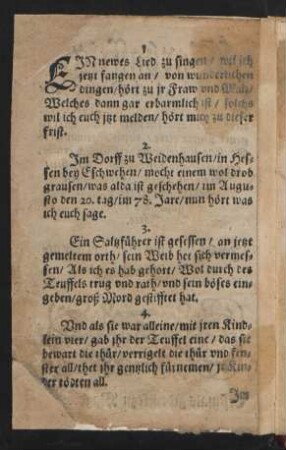 1
EJN newes Lied zu singen / wil ich
jetzt fangen an / von wunderlichen
dingen / hört zu jr Fraw vnd Man /
Welches dann gar erbarmlich ist / solchs
wil ich euch jtzt melden / hört mich zu dieser
frist.
2.
Jm Dorff zu Weidenhausen / in Hes-
sen bey Eschwehen / mocht einem wol drob
grausen / was alda ist geschehen / im Augu-
sto den 20. tag / im 78. Jare / nun hört was
ich euch sage.
3.
Ein Saltzführer ist gesessen / an jetzt
gemeltem orth / sein Weib het sich vermes-
sen / Als ich es hab gehort / Wol durch des
Teuffels trug vnd rath / vnd sein böses ein-
geben / groß Mord gestifftet hat.
4.
Vnd als sie war alleine / mit jren Kind-
lein vier / gab jhr der Teuffel eine / das sie
bewart die thür / verrigelt die thür vnd fen-
ster all / thet jhr gentzlich fürnemen / jr Kin-
der tödten all.
Jm